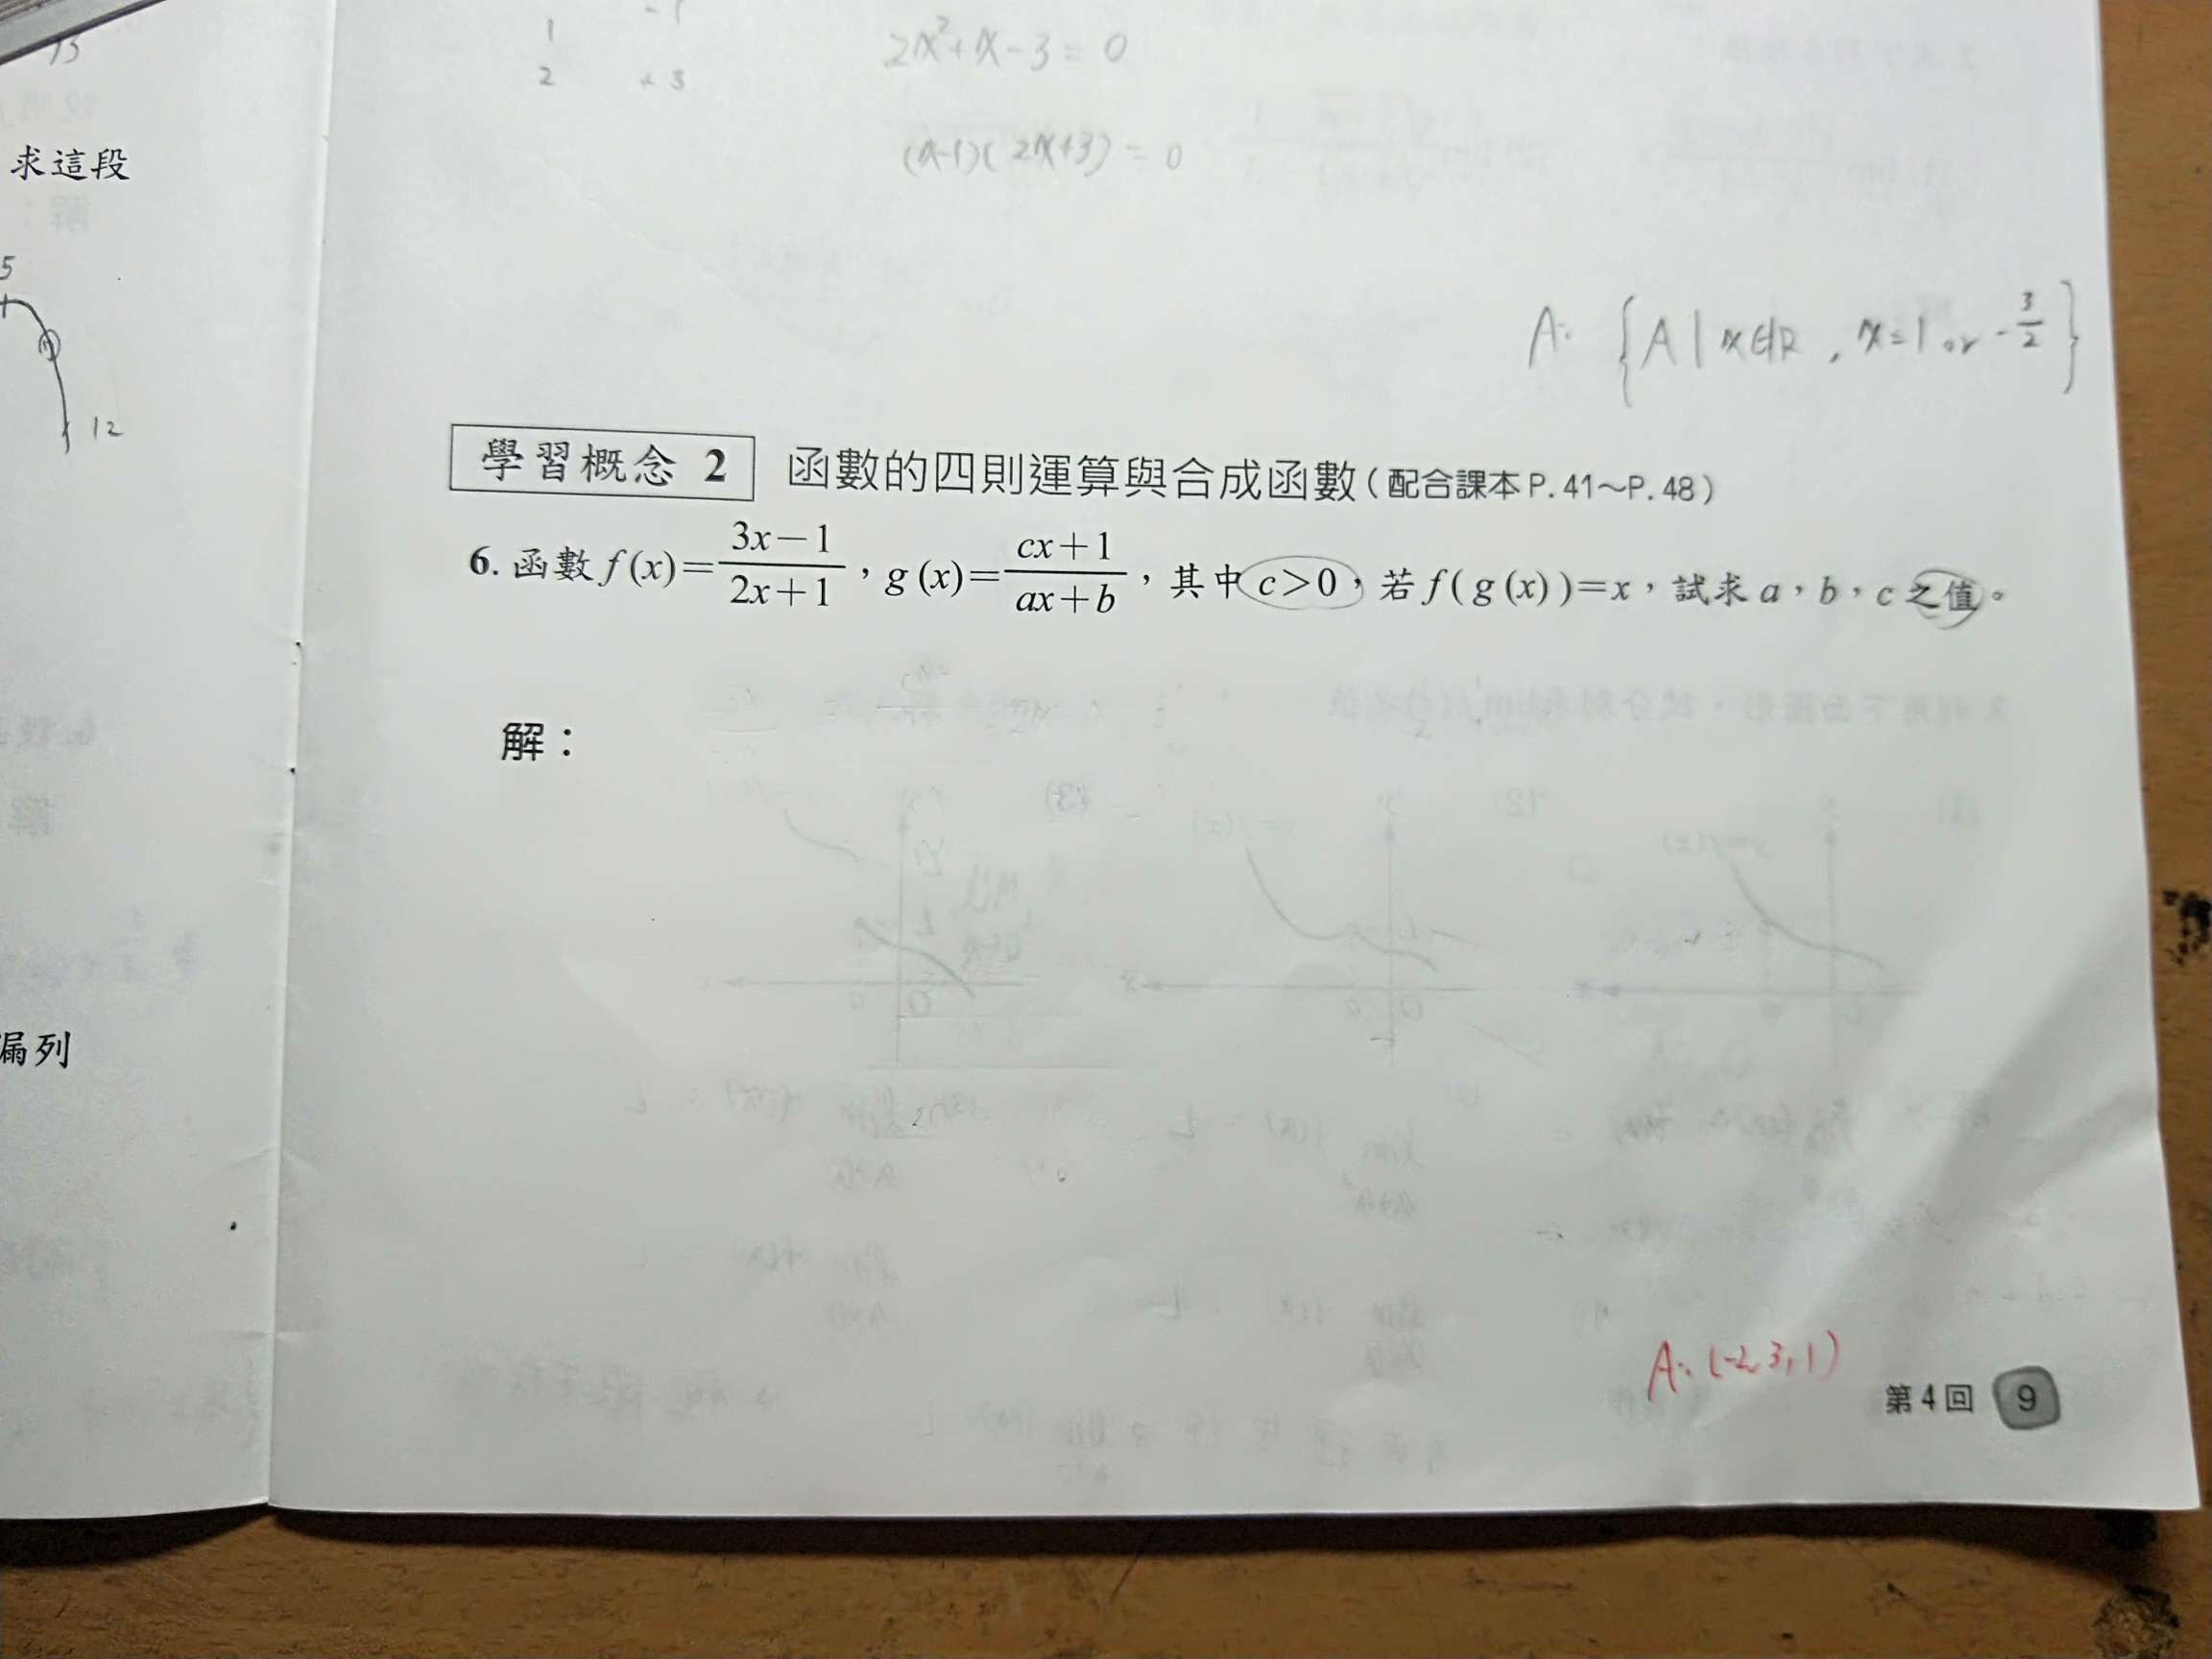 1 -1
2 +3
2x²+x-3=0
(x-1)(2x+3)=0
求這段
5
12
A: {A|x∈R, x=1 or -3/2}
學習概念 2 函數的四則運算與合成函數(配合課本P.41～P.48)
6. 函數 f(x)=(3x-1)/(2x+1)，g(x)=(cx+1)/(ax+b)，其中 c>0，若 f(g(x))=x，試求 a，b，c 之值。
解：
漏列
A: (-2,3,1)
第4回 9